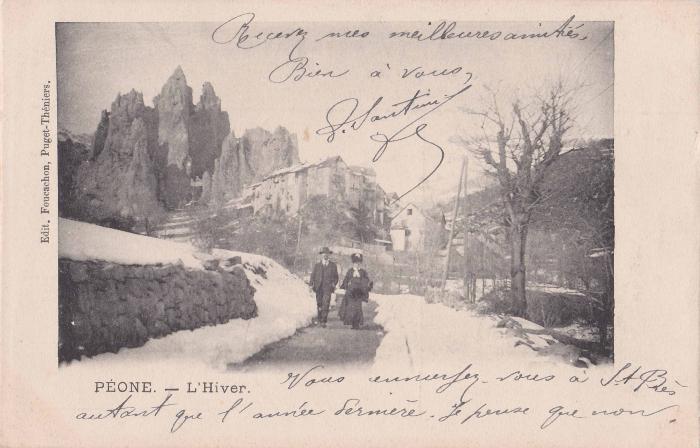 Recevez mes meilleures amitiés,
Bien à vous,
J. Santini
Edit. Foucachon, Puget-Théniers.
PÉONE. — L'Hiver.
Vous ennuyez-vous à St
autant que l'année dernière. Je pense que non